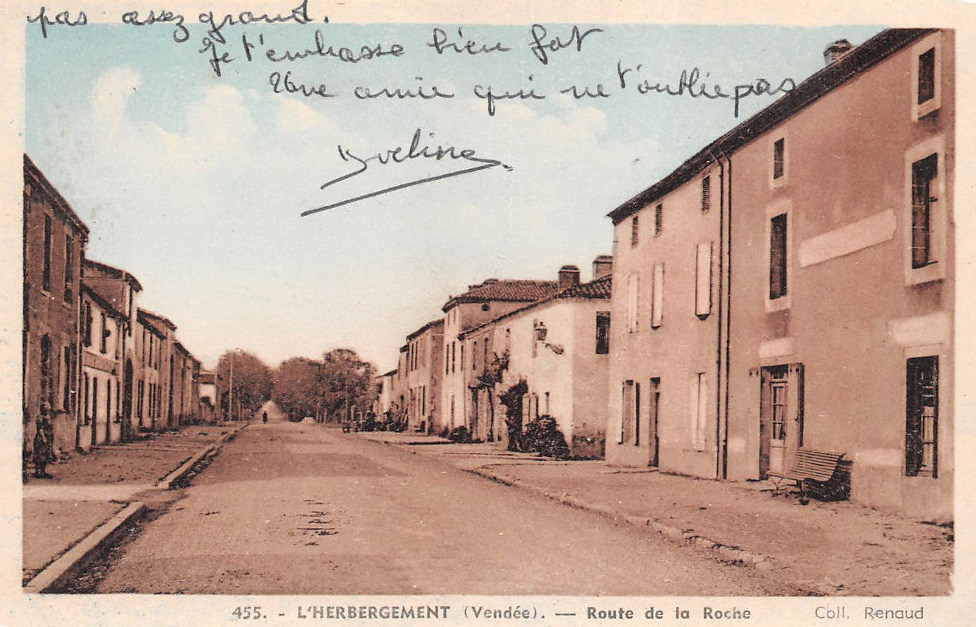 pas assez grand.
Je t'embrasse bien fort
Une amie qui ne t'oublie pas
Eveline
455. - L'HERBERGEMENT (Vendée). — Route de la Roche Coll. Renaud